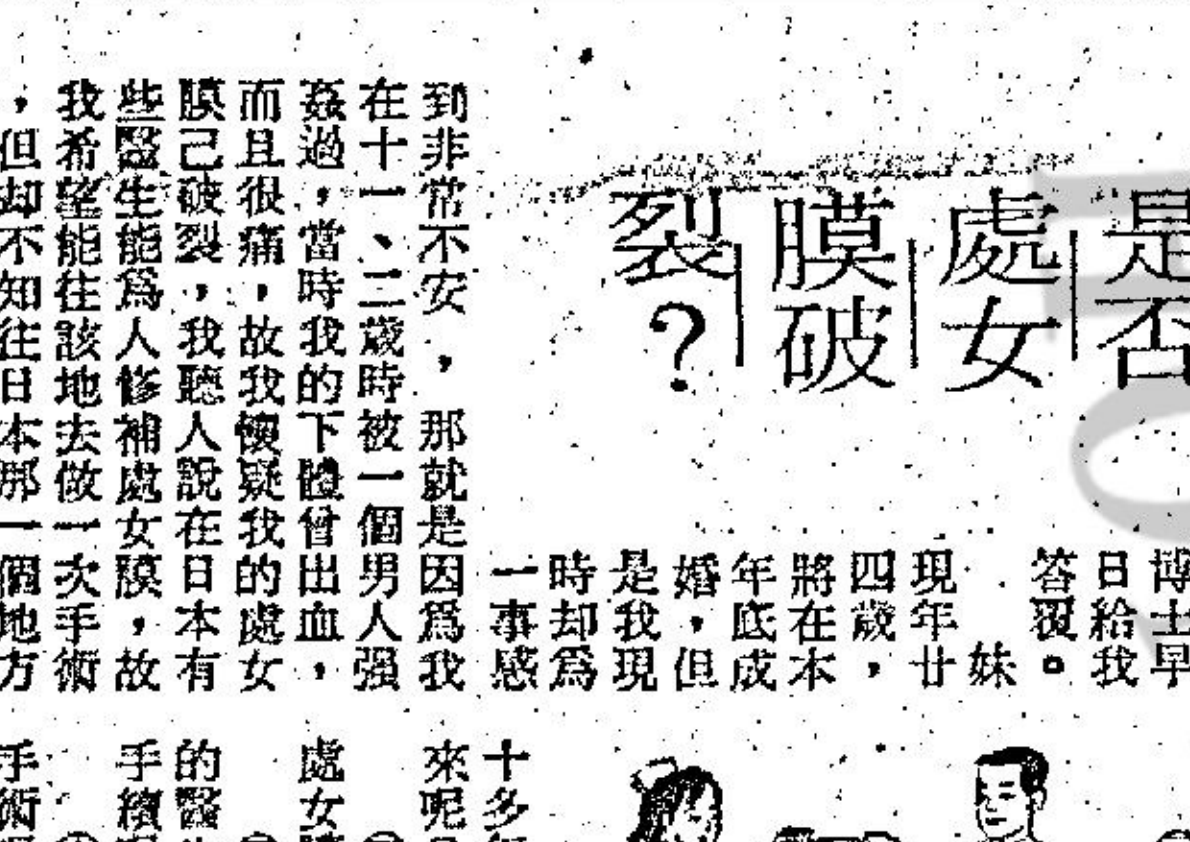 是否
處女
膜破
裂?
博士早
日給我
答覆。
妹
現年廿
四歲,
將在本
年底成
婚,但
是我現
時却爲
一事感
到非常不安,那就是因爲我
在十一、二歲時被一個男人强
姦過,當時我的下體曾出血,
而且很痛,故我懷疑我的處女
膜己破裂,我聽人說在日本有
些醫生能爲人修補處女膜,故
我希望能往該地去做一次手術
,但却不知往日本那一個地方
十多
來呢
處女
的醫
手續
手術